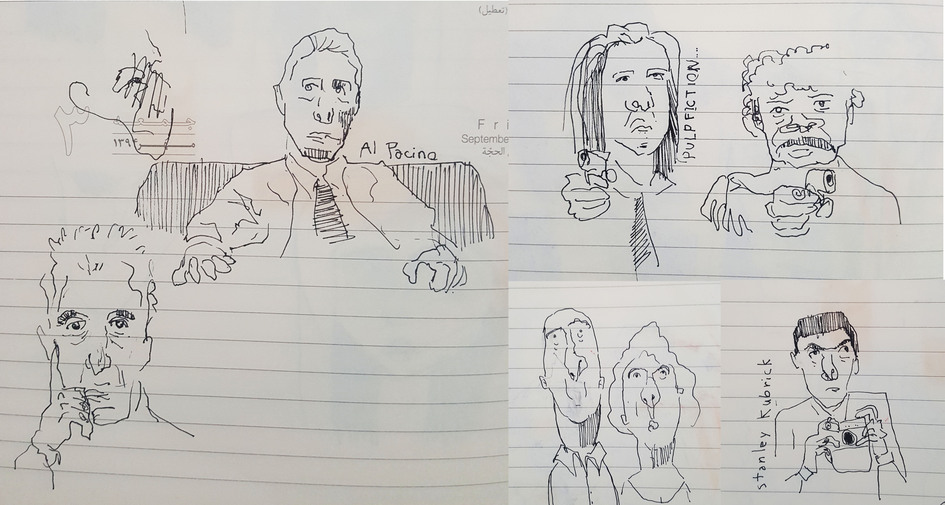 (تعطیل)
Fri
Septembe
الحجّة
۱۳۹
Al Pacino
PULP FICTION...
stanley Kubrick